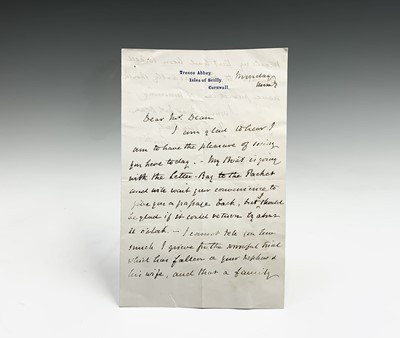 Tresco Abbey,
Isles of Scilly,
Cornwall.
Monday
Dear Mr Dean
I am glad to hear I
am to have the pleasure of seeing
you here today. – My Boat is going
with the Letter-Bag to the Packet
and will wait your convenience to
give you a passage back, but should
be glad if it could return by about
11 o'clock – I cannot tell you how
much I grieve for the awful trial
which has fallen on your nephew &
his wife, and that a family